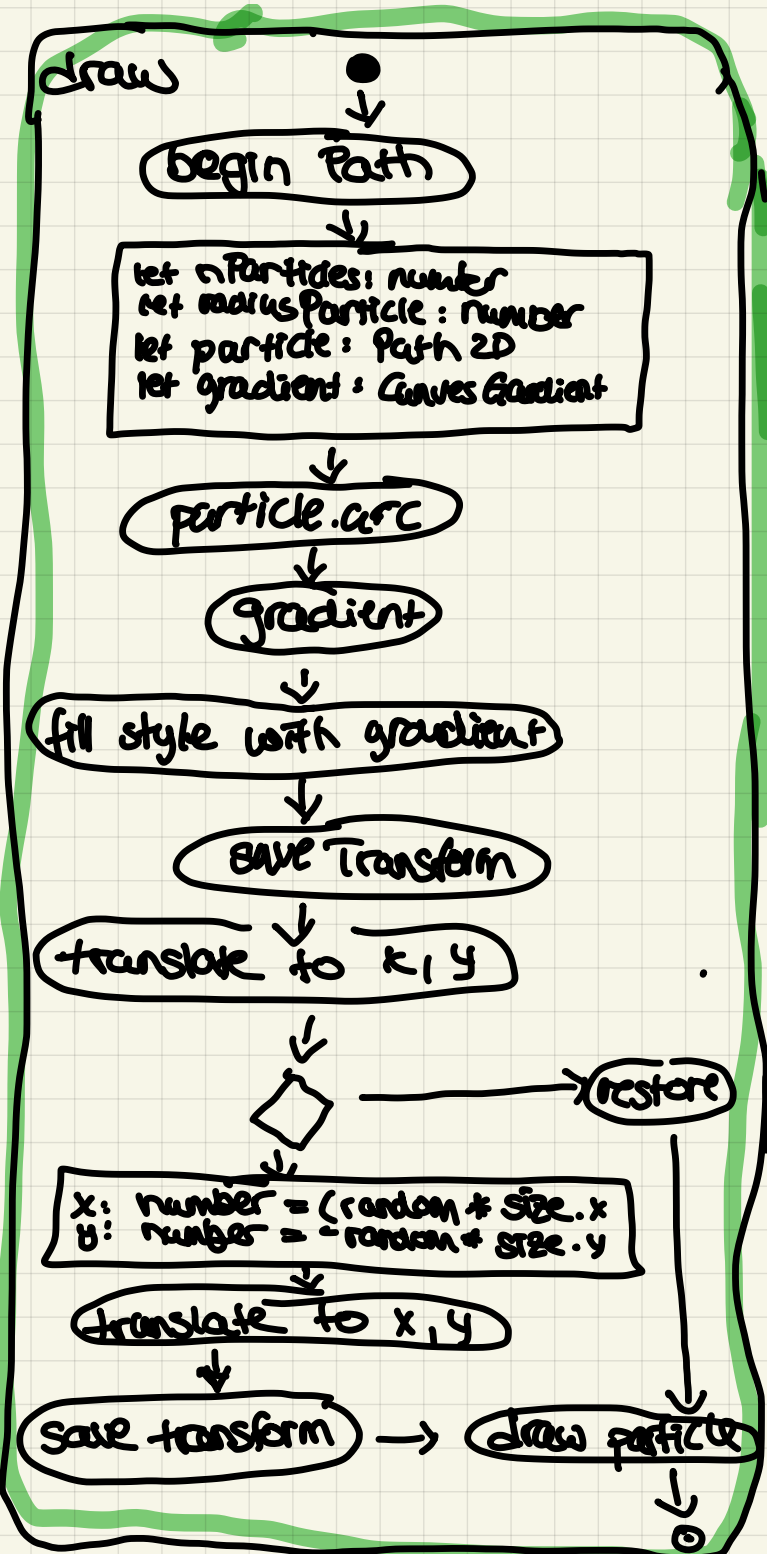 draw
begin Path
let nParticles: number
let radiusParticle: number
let particle: Path2D
let gradient: CanvesGradient
particle.arc
gradient
fill style with gradient
save Transform
translate to x, y
restore
x: number = (random * size.x
y: number = - random * size.y
translate to x, y
save transform
draw particle